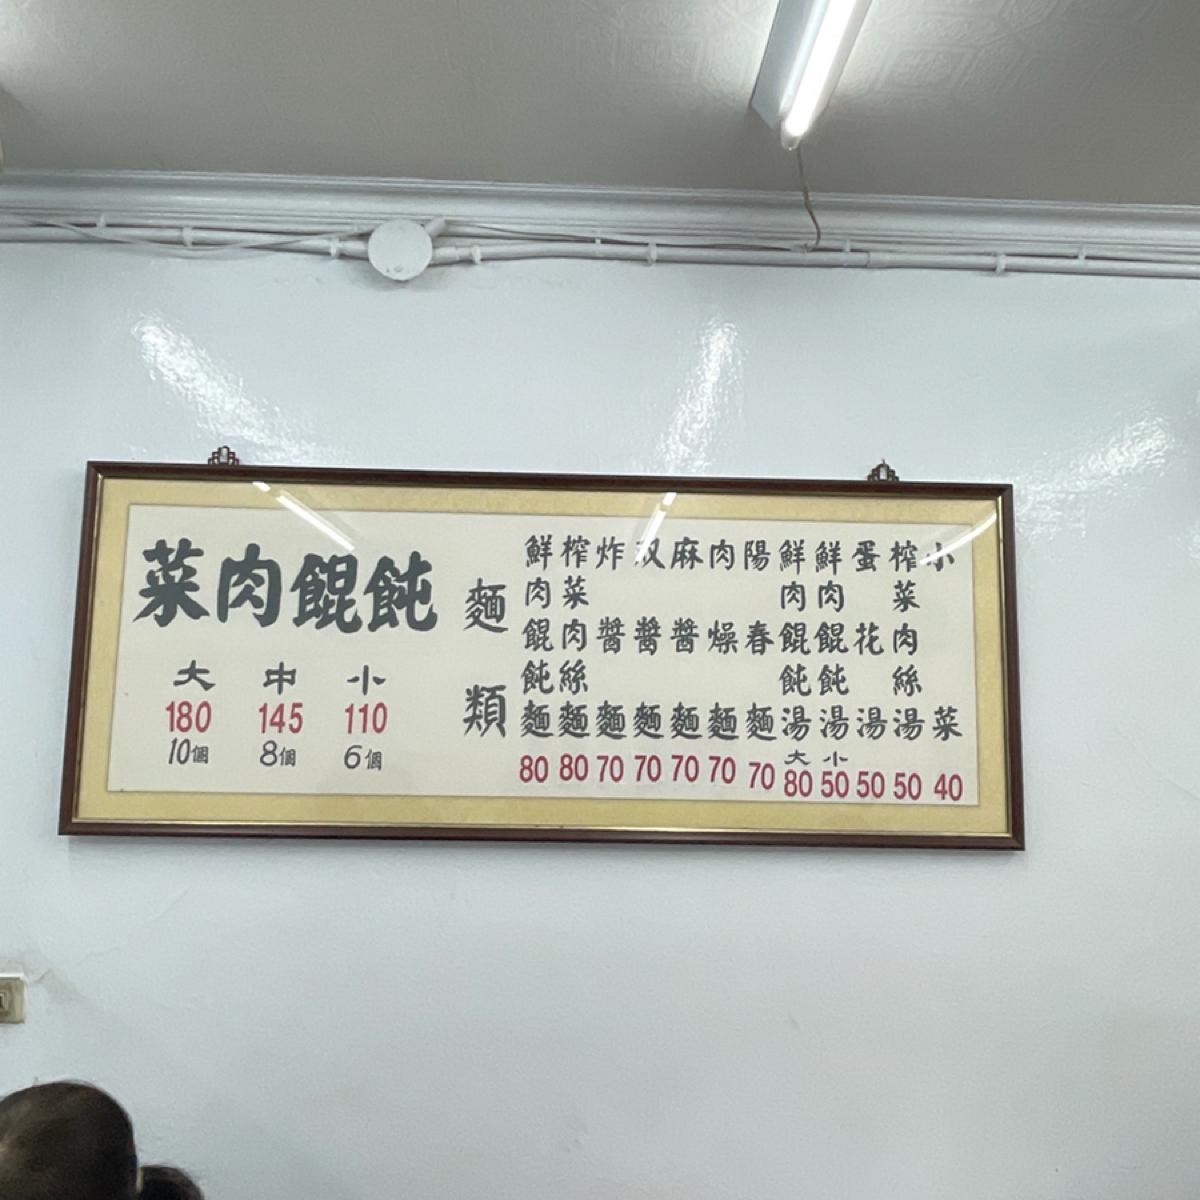 菜肉餛飩
大 中 小
180 145 110
10個 8個 6個
麵類
鮮肉餛飩麵 80
榨菜肉絲麵 80
炸醬麵 70
双醬麵 70
麻醬麵 70
肉燥麵 70
陽春麵 70
鮮肉餛飩湯 大 80
鮮肉餛飩湯 小 50
蛋花湯 50
榨菜肉絲湯 50
小菜 40